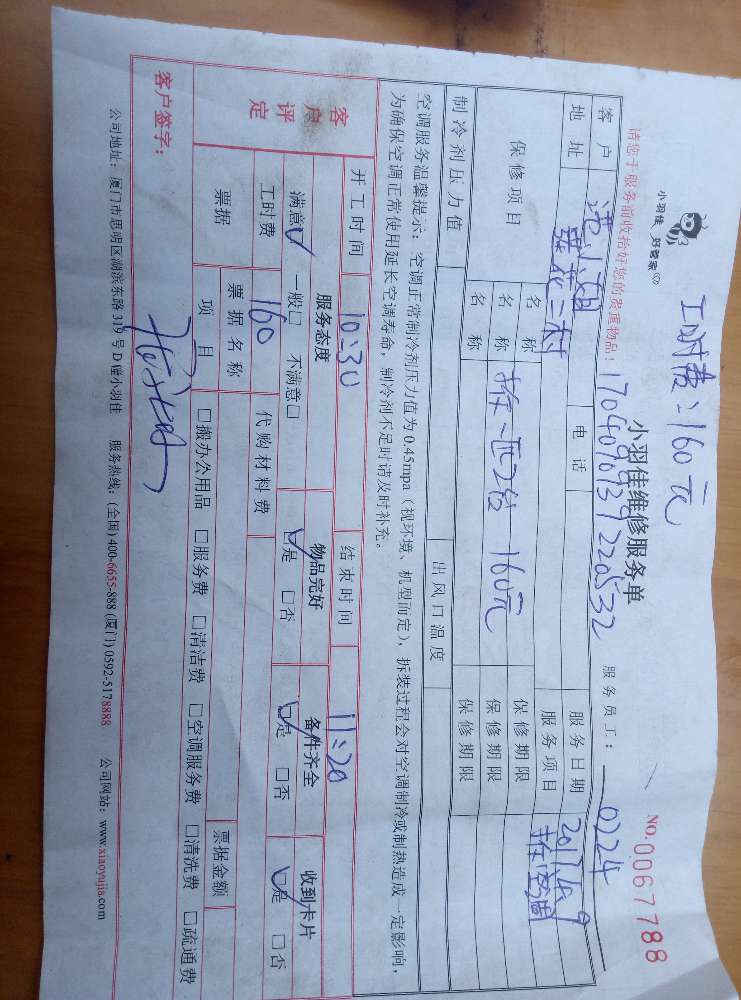 工时费:160元
小羽佳 好管家
小羽佳维修服务单
NO.0067788
17040901312205532
请您于服务前收拾好您的贵重物品!
服务员工: 0224
客户 小姐 电话 服务日期 2017.4.9
地址 二村 服务项目
保修项目 名称 保修期限
名称 拆一匹2台 160元 保修期限
名称 保修期限
制冷剂压力值 出风口温度
空调服务温馨提示:空调正常制冷剂压力值为0.45mpa(视环境、机型而定),拆装过程会对空调制冷或制热造成一定影响,
为确保空调正常使用延长空调寿命,制冷剂不足时请及时补充。
开工时间 10:30 结束时间 11:20
客户评定 服务态度 物品完好 备件齐全 收到卡片
满意☑ 一般□ 不满意□ ☑是 □否 ☑是 □否 ☑是 □否
工时费 160 代购材料费
票据 票据名称 票据金额
项目 □搬办公用品 □服务费 □清洁费 □空调服务费 □清洗费 □疏通费
客户签字:
公司地址:厦门市思明区湖滨东路319号D幢小羽佳 服务热线:(全国)400-6655-888 (厦门)0592-5178888 公司网站:www.xiaoyujia.com